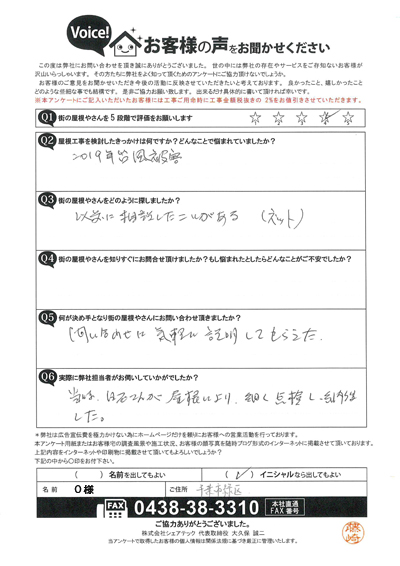 Voice!
お客様の声をお聞かせください
この度は弊社にお問い合わせを頂き誠にありがとうございました。 世の中には弊社の存在やサービスをご存知ないお客様が
沢山いらっしゃいます。 その方たちに弊社をよく知って頂くためのアンケートにご協力頂けないでしょうか。
お客様のご意見をお聞かせいただき今後の活動に反映させていただきたいと考えております。 良かったこと、嬉しかったこと
どのような些細な事でも結構です。 是非ご協力お願い致します。 出来るだけ具体的に書いて頂ければ幸いです。
※本アンケートにご記入いただいたお客様には工事ご用命時に工事金額税抜きの 2%をお値引きさせていただきます。
Q1 街の屋根やさんを 5 段階で評価をお願いします ☆ ☆ ☆ ☆ ☆
Q2 屋根工事を検討したきっかけは何ですか? どんなことで悩まれていましたか?
2019年台風被害
Q3 街の屋根やさんをどのように探しましたか?
以前に相談したことがある (ネット)
Q4 街の屋根やさんを知りすぐにお問合せ頂けましたか? もし悩まれたとしたらどんなことがご不安でしたか?
Q5 何が決め手となり街の屋根やさんにお問い合わせ頂きましたか?
問い合わせに気軽に説明してもらえた
Q6 実際に弊社担当者がお伺いしていかがでしたか?
当日 屋根に 細く点検し
した。
*弊社は広告宣伝費を極力かけない為にホームページだけを頼りにお客様への営業活動を行っております。
本アンケート用紙またはお客様宅の調査風景や施工状況、お客様の顔写真を随時ブログ形式のインターネットに掲載させて頂いております。
上記内容をインターネットや印刷物に掲載させて頂いてもよろしいでしょうか?
下記の中から〇印をお付け下さい。
( ) 名前を出してもよい ( ) イニシャルなら出してもよい
名前 O様 ご住所 千葉市緑区
FAX 0438-38-3310 本社直通 FAX番号
ご協力ありがとうございました。
株式会社シェアテック 代表取締役 大久保 誠二
当アンケートで取得したお客様の個人情報は関係法規に基づき厳正に管理いたします。